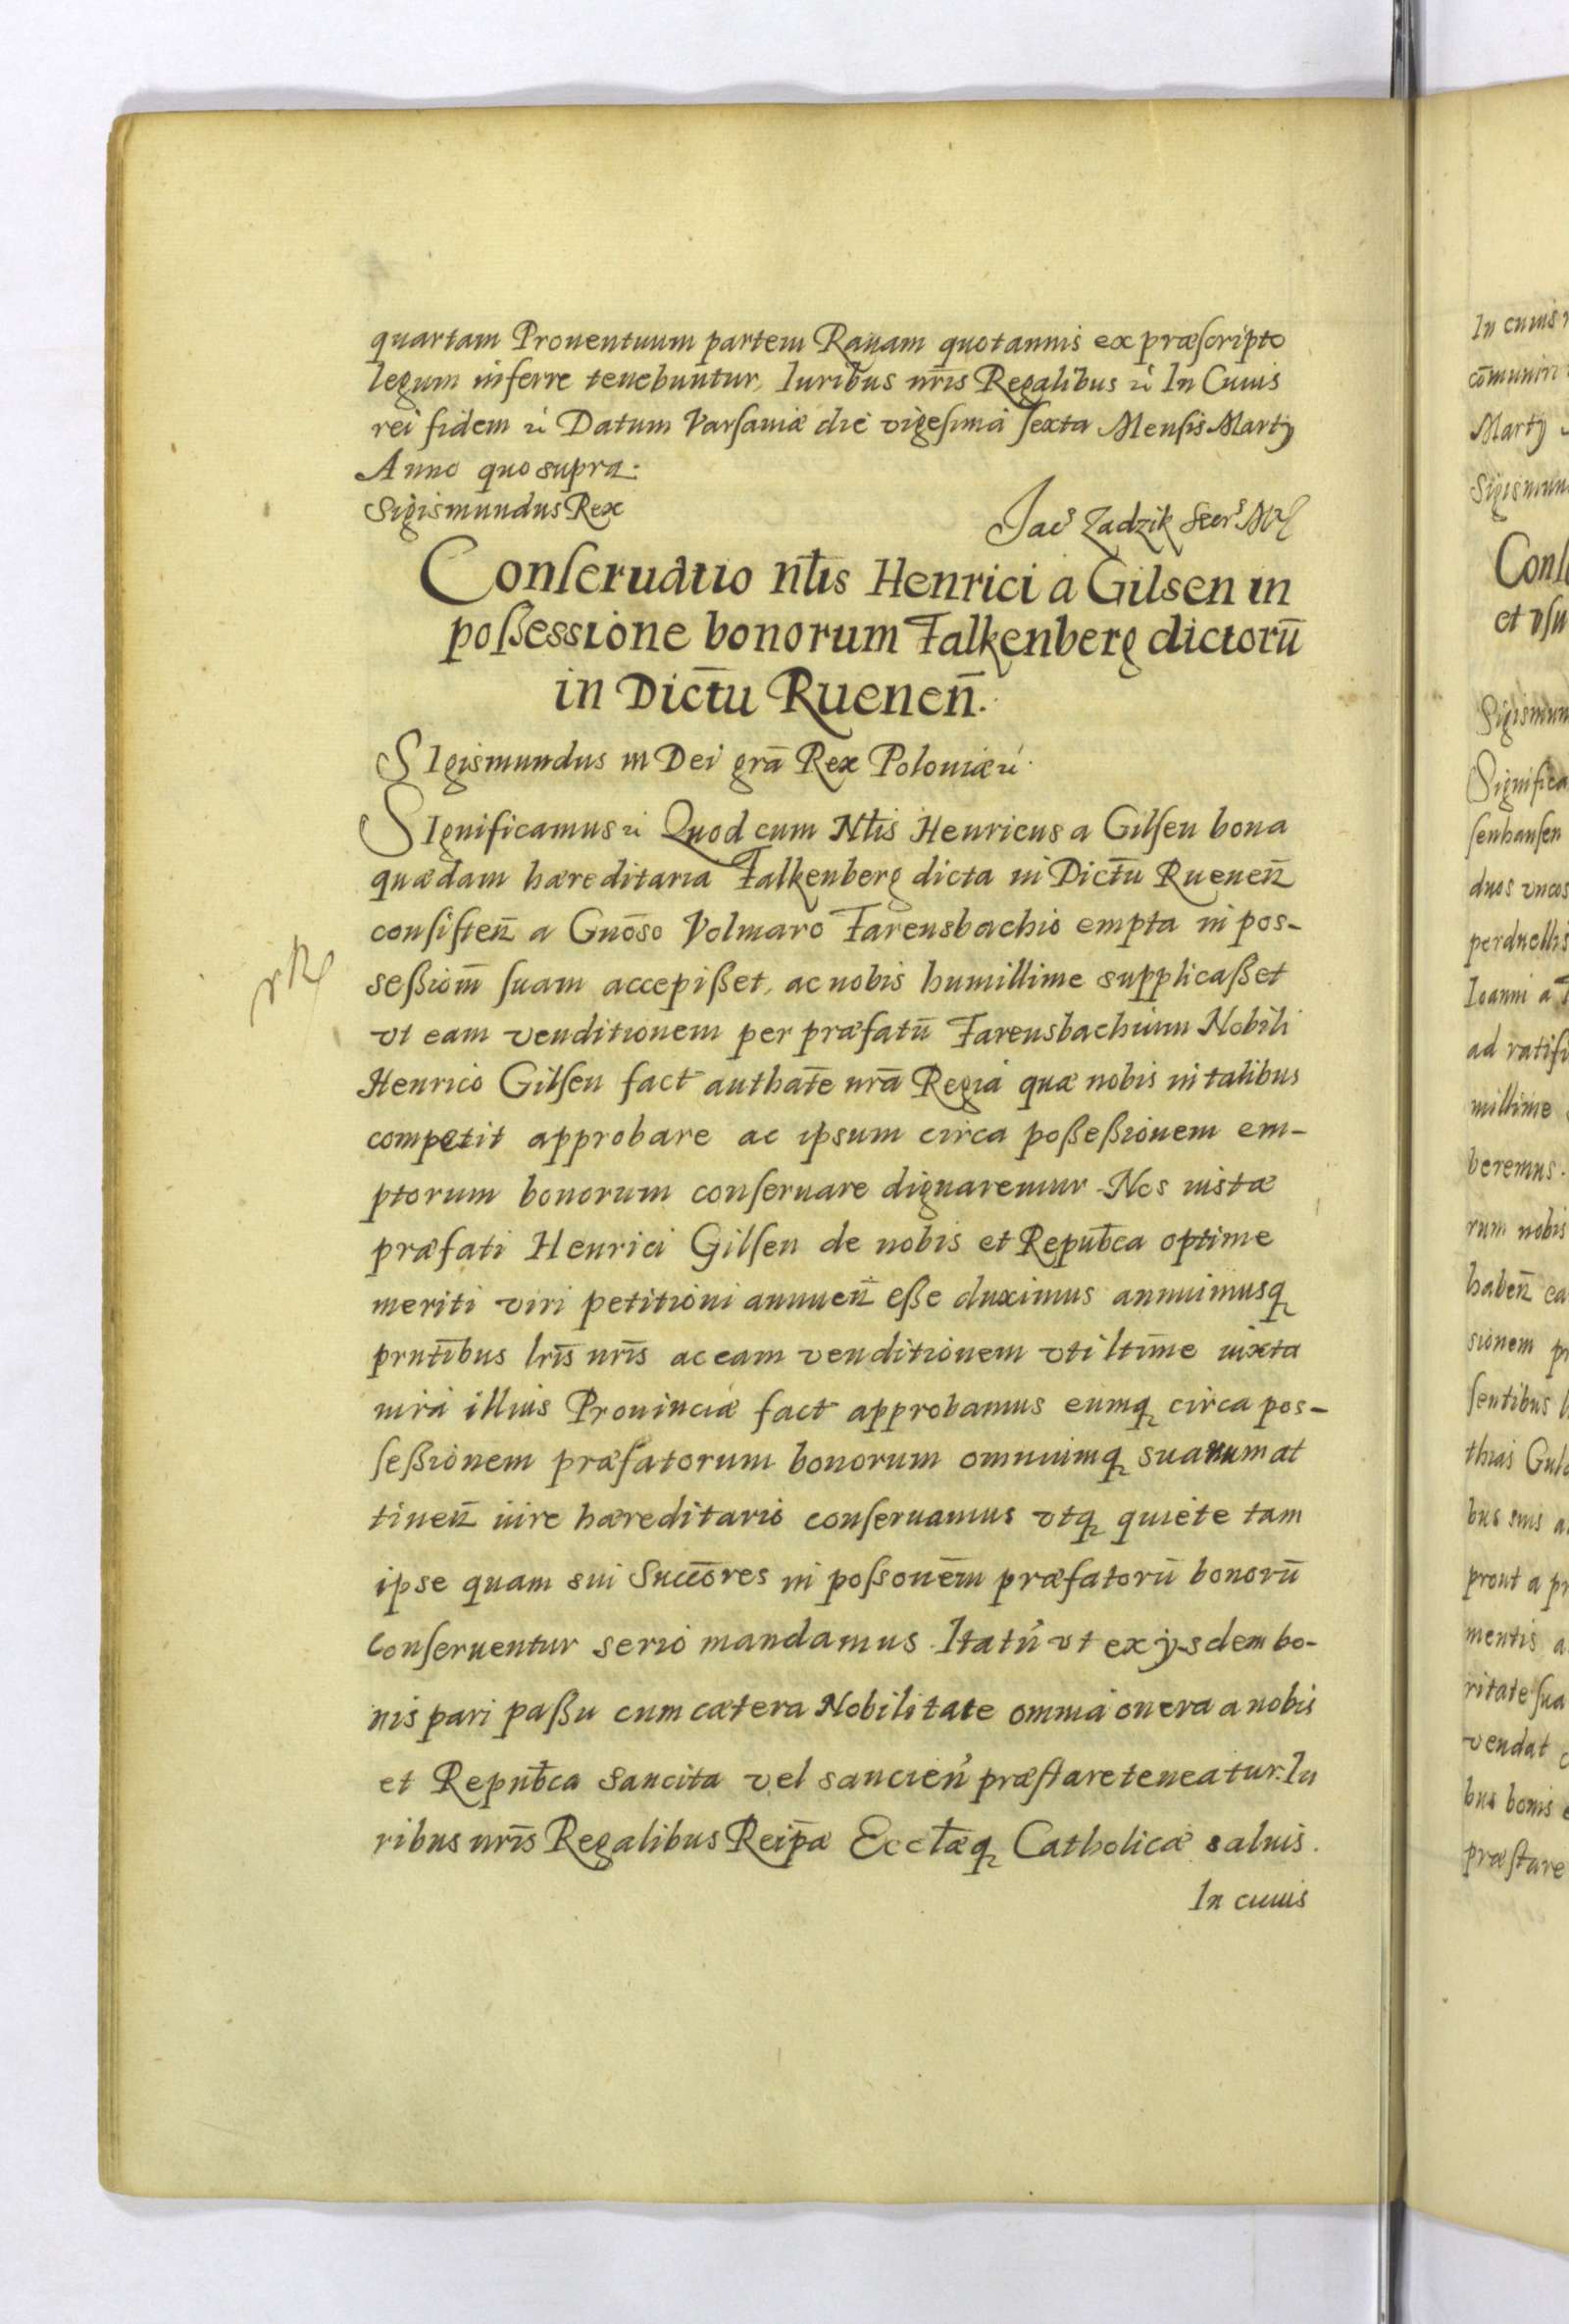 quartam Prouentuum partem Rauam quotannis ex præſcripto
legum inferre tenebuntur, Iuribus nr̄is Regalibus ꝛc̓ In Cuius
rei fidem ꝛc̓ Datum Varſauiæ die vigeſima ſexta Menſis Martÿ
Anno quo supra.
Sigismundus Rex
Jac⁹ Zadzik Secr⁹
Conſeruatio Nt̄is Henrici a Gilsen in
poßessione bonorum Falkenberg dictorū
in Dict̄u Ruenen̄.
SIgismundus III Dei grā Rex Poloniæ ꝛc̓.
SIgnificamus ꝛc̓ Quod cum Nt̄is Henricus a Gilſen bona
quædam hæreditaria Falkenberg dicta in Dict̄u Ruenen̄
conſiſten̄ a Gnōso Volmaro Farensbachio empta in pos-
seßiom̄ ſuam accepißet, ac nobis humillime supplicaßet
vt eam venditionem per præfatū Farensbachium Nobili
Henrico Gilſen fact authat̄e nrā Regia quæ nobis in talibus
competit approbare ac ipsum circa poßeßionem em-
ptorum bonorum conſeruare dignaremur. Nos iustæ
præfati Henrici Gilſen de nobis et Repub̄ca optime
meriti viri petitioni annuen̄ eße duximus annuimusq
prnt̄ibus lr̄is nr̄is ac eam venditionem vti ltīme iuxta
iura illius Prouinciæ fact approbamus eumq circa pos-
ſeßionem præfatorum bonorum omniumq suarum at
tinen̄ iure hæreditario conſeruamus vtq quiete tam
ipse quam sui Succōres in poſsonēm præfatorū bonorū
Conſeruentur serio mandamus. Ita tn̄ vt ex ÿsdem bo-
nis pari paßu cum cætera Nobilitate omnia onera a nobis
et Repub̄ca sancita vel sancien̄ præſtare teneatur. Iu
ribus nr̄is Regalibus Reip̄æ Eccl̄æq Catholicæ saluis.
In cuius
In cuius
cōmuniri
Martÿ
Sigismun
Conſ
et vſu
Sigismun
Significa
ſenhauſen
duos vncos
perduellis
Ioanni a
ad ratifi
millime
beremus.
rum nobis
haben̄ ea
sionem pr
ſentibus l
thias Guld
bus suis a
prout a pr
mentis a
ritate ſua
vendat
bus bonis
præſtare